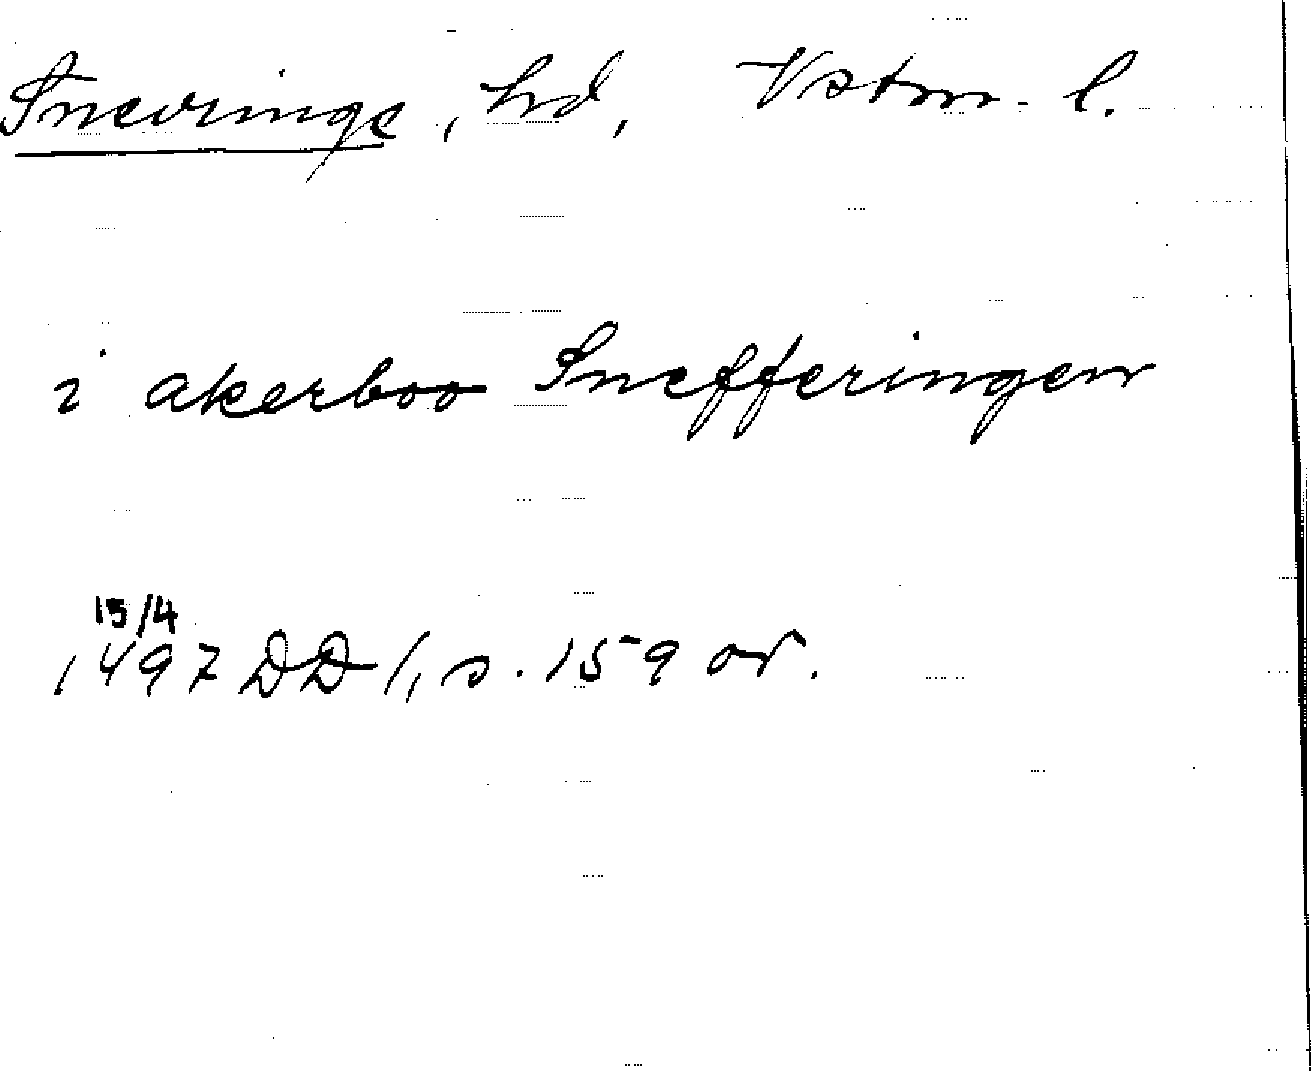 Snevringe, hd, Vstm. l.
i akerboo Snefferingen
15/4
1497 DD 1, s. 159 or.